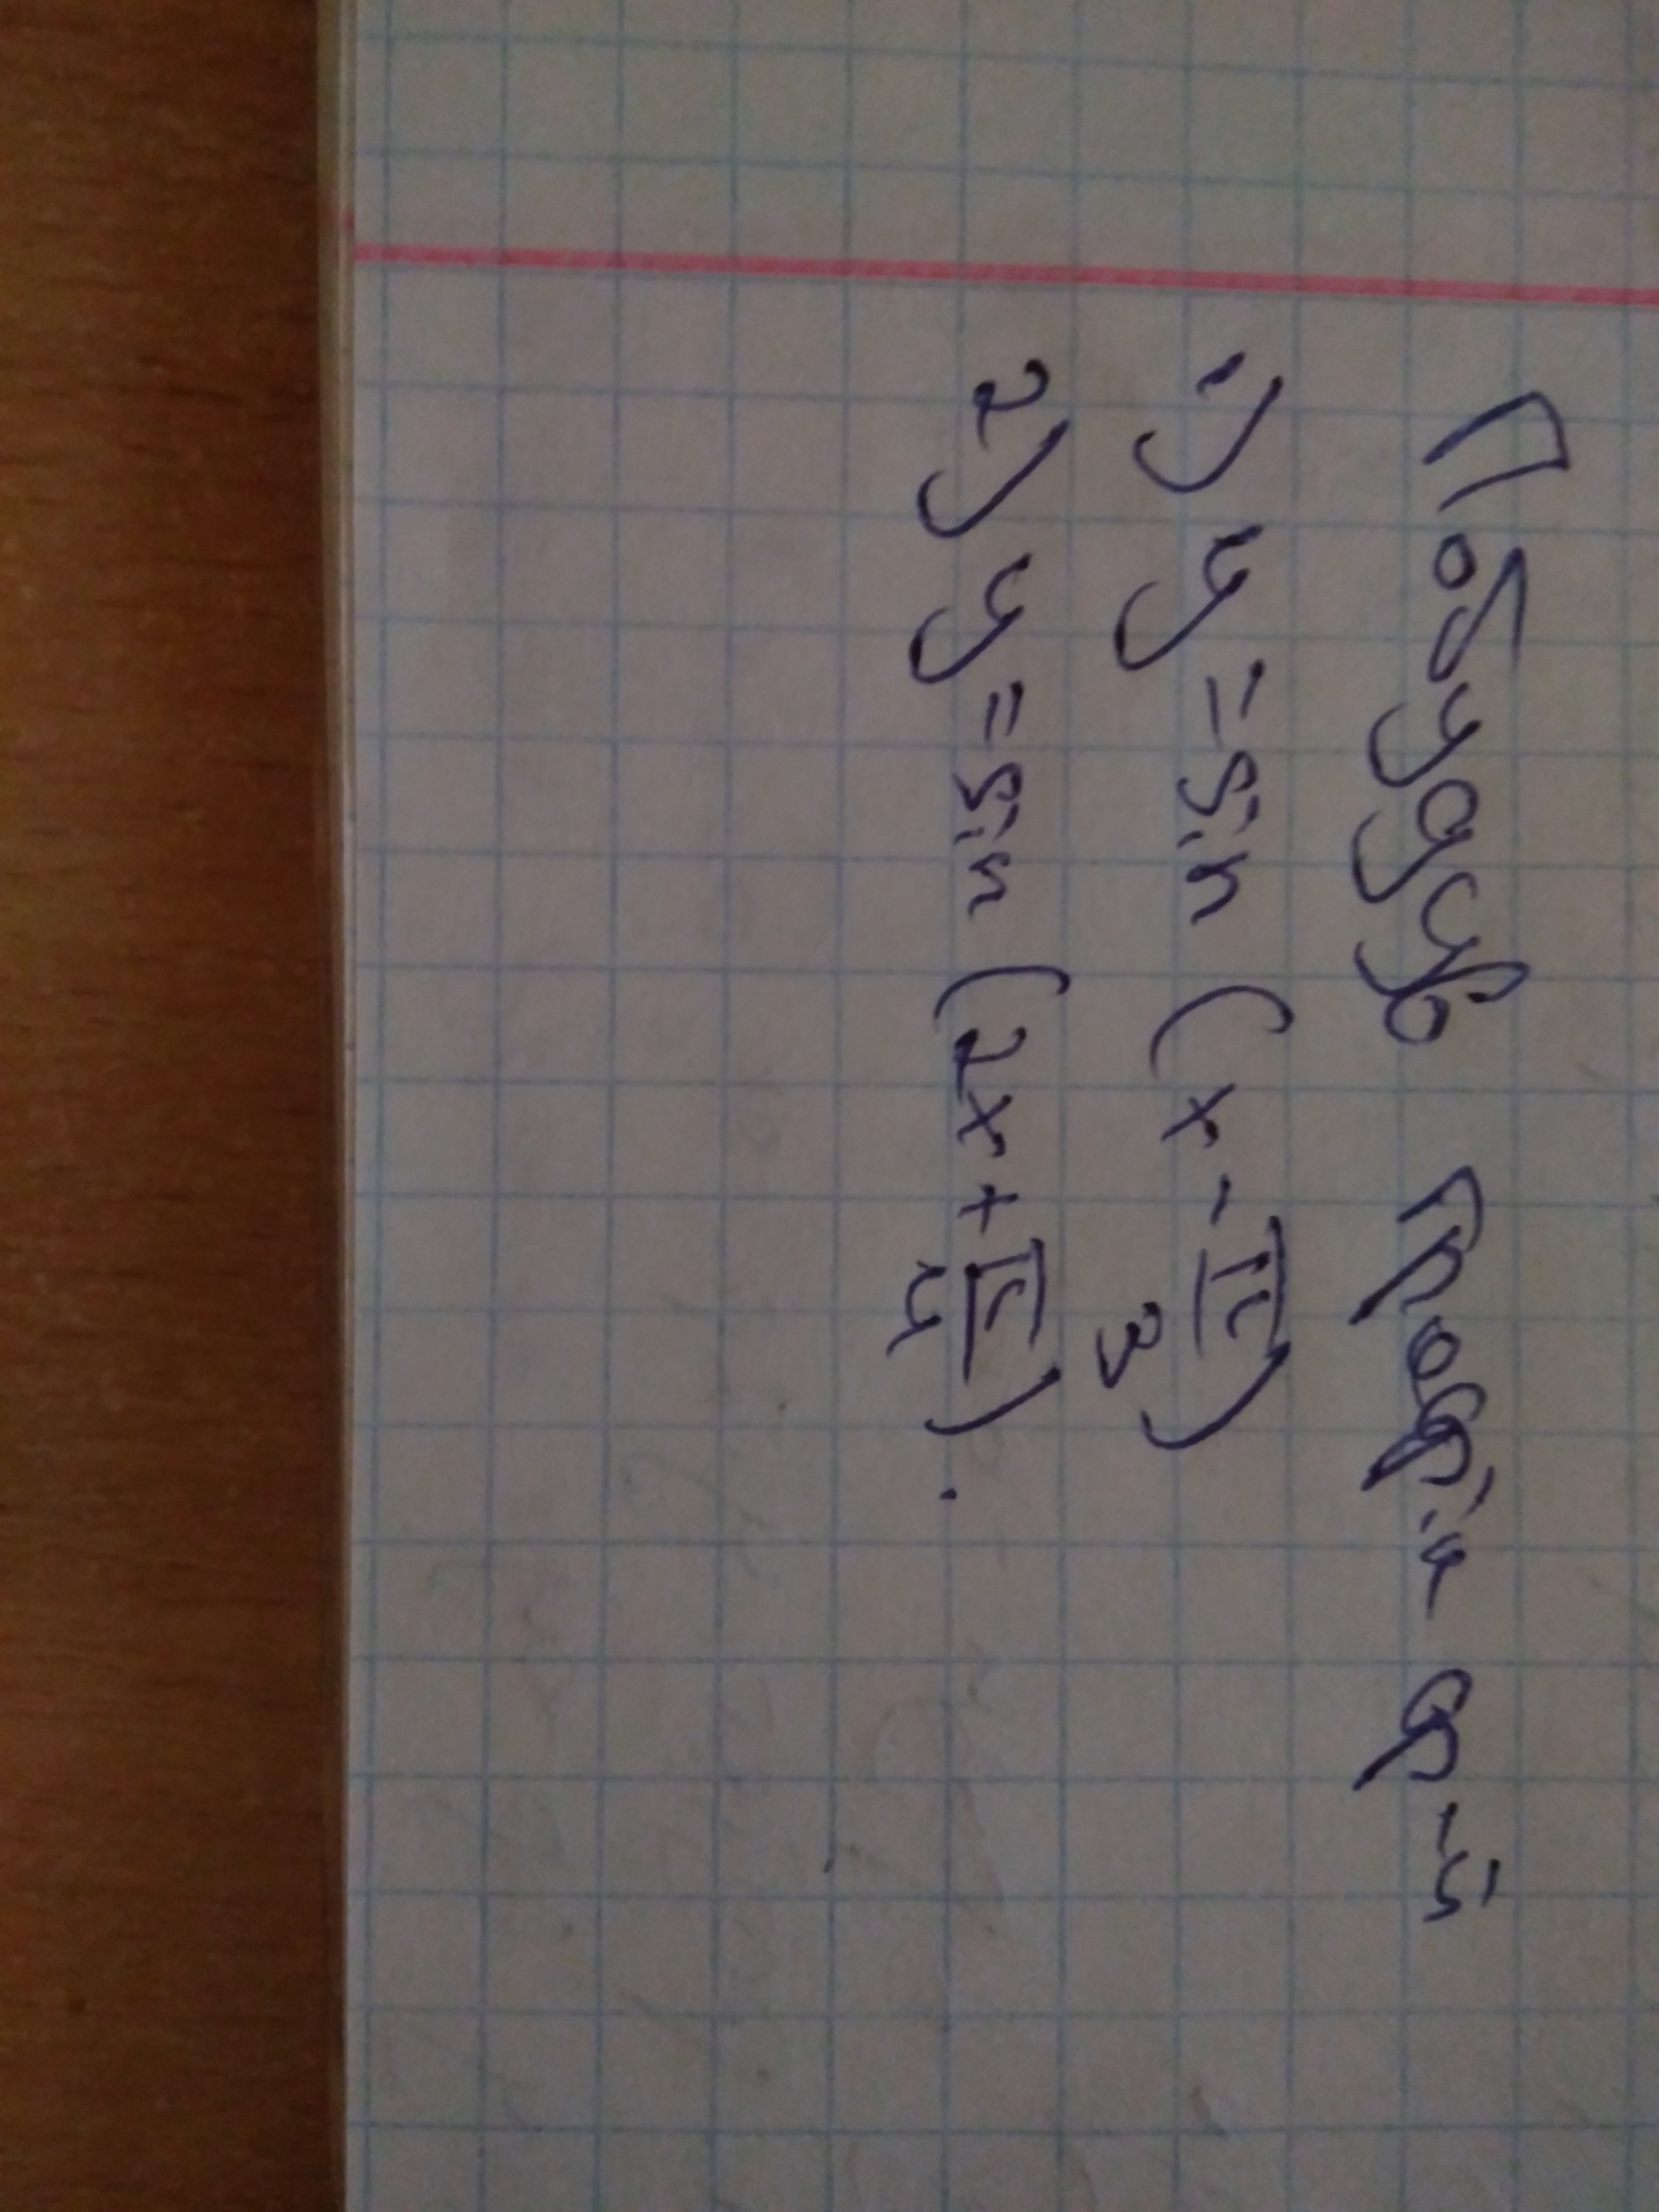 Побудув графік ф-ій
1) y = sin (x - π/3)
2) y = sin (2x + π/4).